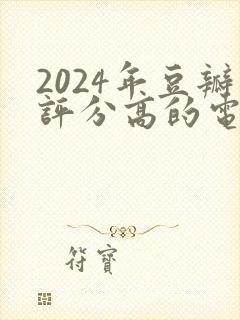 2024年豆瓣
評分高的電
符寶